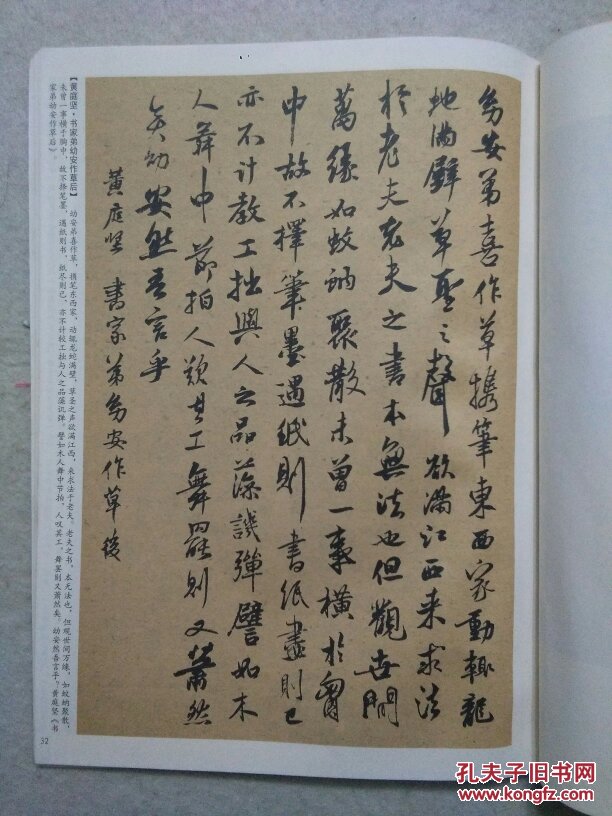 幼安弟喜作草携筆東西家動輒龍
蛇满壁草聖之聲欲满江西来求法
於老夫老夫之書本無法也但觀世間
萬緣如蚊蚋聚散未曾一事橫於胸
中故不擇筆墨遇紙則書紙盡則已
亦不計較工拙與人之品藻譏彈譬如木
人舞中節拍人歎其工舞罷則又蕭然
矣幼安然吾言乎
黄庭坚 書家弟幼安作草後
【黄庭坚·书家弟幼安作草后】 幼安弟喜作草,携笔东西家,动辄龙蛇满壁,草圣之声欲满江西,来求法于老夫。老夫之书,本无法也,但观世间万缘,如蚊蚋聚散,
未曾一事横于胸中,故不择笔墨,遇纸则书,纸尽则已,亦不计较工拙与人之品藻讥弹。譬如木人舞中节拍,人叹其工,舞罢则又萧然矣。幼安然吾言乎?黄庭坚《书
家弟幼安作草后》。
32
孔夫子旧书网
www.kongfz.com